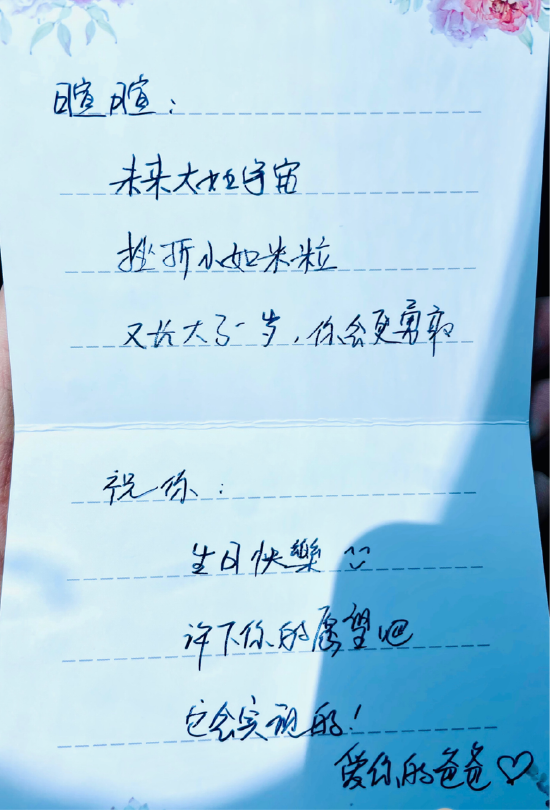 暄暄：
未来大如宇宙
挫折小如米粒
又长大了一岁，你会更勇敢
祝你：
生日快樂
许下你的愿望吧
它会实现的！
爱你的爸爸♡